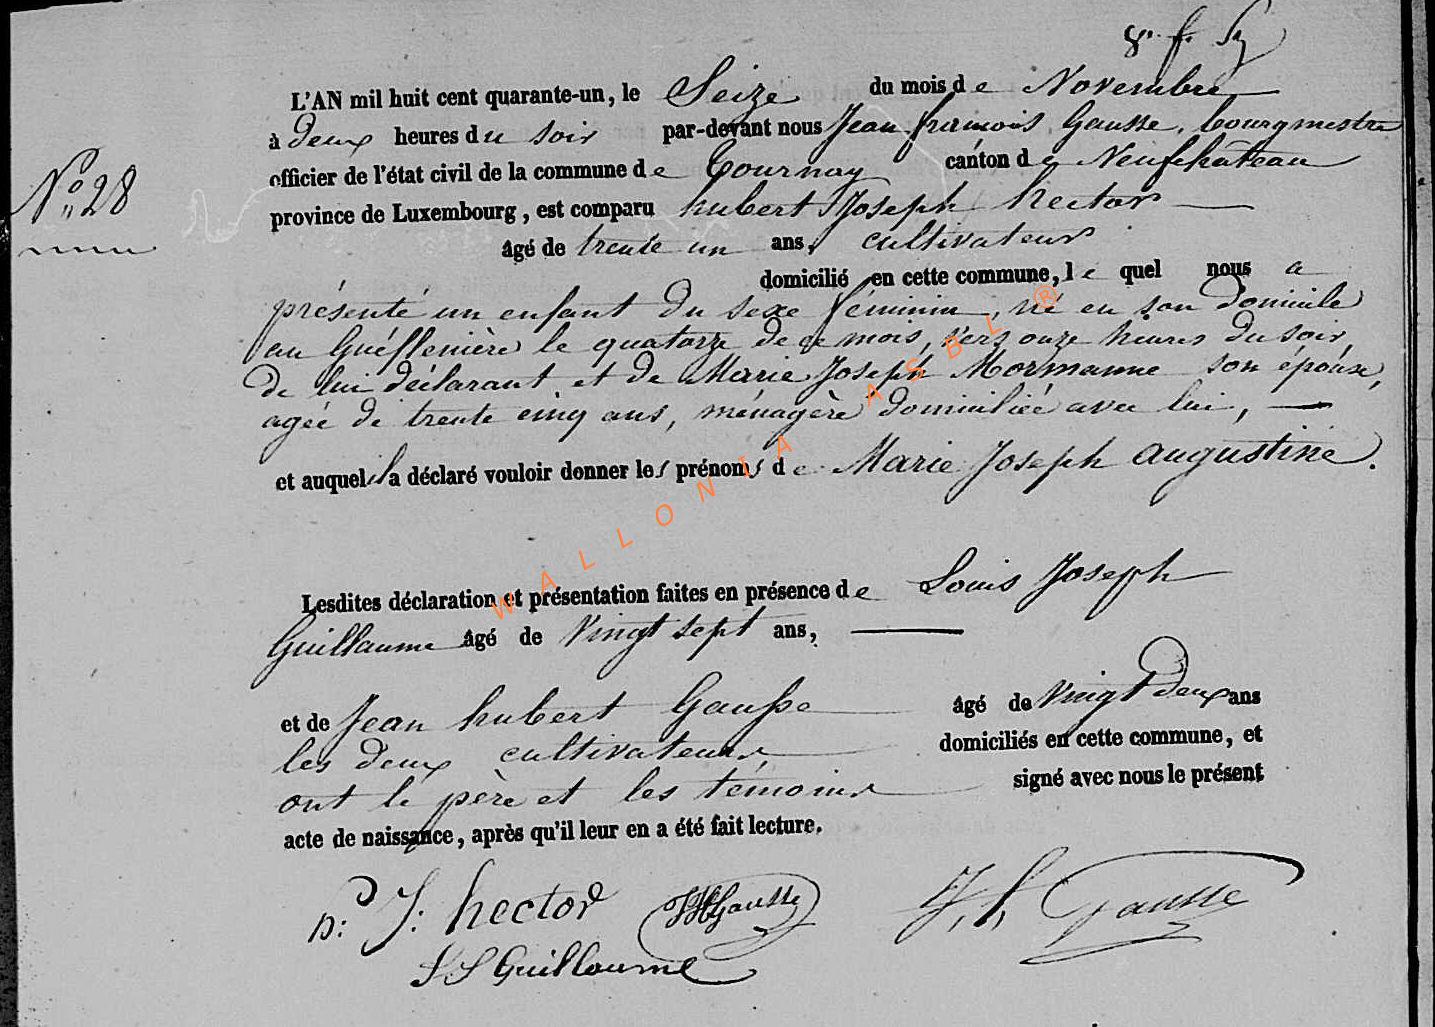 L'AN mil huit cent quarante-un, le Seize du mois de Novembre
à deux heures du soir par-devant nous Jean françois Gausse, bourgmestre
officier de l'état civil de la commune de Tournay canton de Neufchâteau
N° 28
province de Luxembourg, est comparu hubert Joseph hector
âgé de trente un ans, cultivateur
domicilié en cette commune, le quel nous a
présenté un enfant du sexe féminin, né en son domicile
au le quatorze de ce mois, vers onze heures du soir,
de lui déclarant et de Marie Joseph Mormanne son épouse,
agée de trente cinq ans, ménagère domiciliée avec lui,
et auquel il a déclaré vouloir donner les prénoms de Marie Joseph augustine.
Lesdites déclaration et présentation faites en présence de Louis Joseph
Guillaume âgé de vingt sept ans,
et de Jean hubert Gausse âgé de vingt deux ans
les deux cultivateurs, domiciliés en cette commune, et
ont le père et les témoins signé avec nous le présent
acte de naissance, après qu'il leur en a été fait lecture.
J: hector JH Gausse J. f. Gausse
Guillaume
WALLONIA ASBL ®